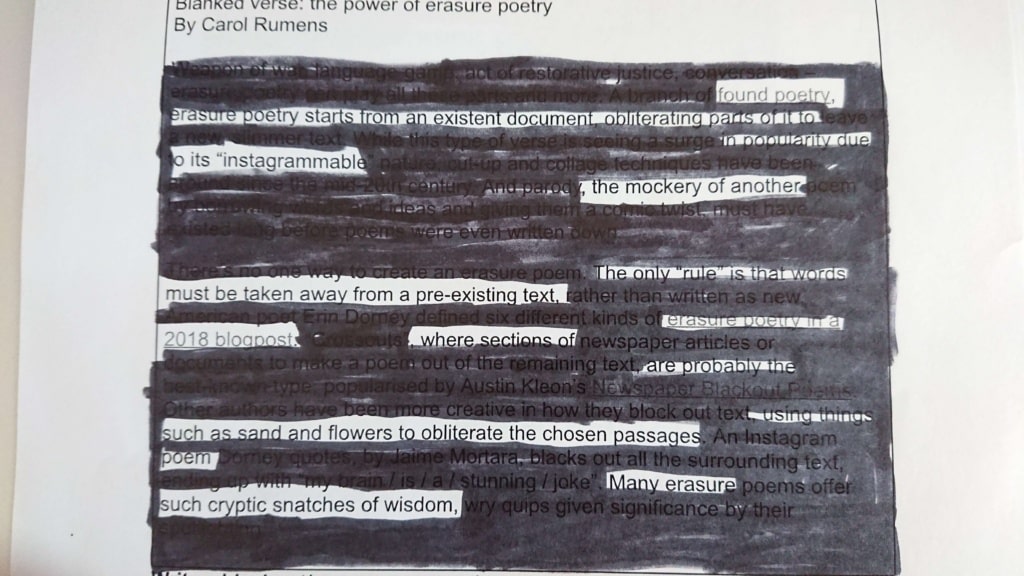 Blanked verse: the power of erasure poetry
By Carol Rumens
Weapon of war, language-game, act of restorative justice, conversation –
erasure poetry can play all these parts and more. A branch of found poetry,
erasure poetry starts from an existent document, obliterating parts of it to leave
a new, slimmer text. While this type of verse is seeing a surge in popularity due
to its "instagrammable" nature, cut-up and collage techniques have been
around since the mid-20th century. And parody, the mockery of another poem
by borrowing and ideas and giving them a comic twist, must have
existed long before poems were even written down.
There's no one way to create an erasure poem. The only "rule" is that words
must be taken away from a pre-existing text, rather than written as new.
American poet Erin Dorney defined six different kinds of erasure poetry in a
2018 blogpost. "Crossouts", where sections of newspaper articles or
documents to make a poem out of the remaining text, are probably the
best-known type, popularised by Austin Kleon's Newspaper Blackout Poems.
Other authors have been more creative in how they block out text, using things
such as sand and flowers to obliterate the chosen passages. An Instagram
poem Dorney quotes, by Jaime Mortara, blacks out all the surrounding text,
ending up with "my brain / is / a / stunning / joke". Many erasure poems offer
such cryptic snatches of wisdom, wry quips given significance by their